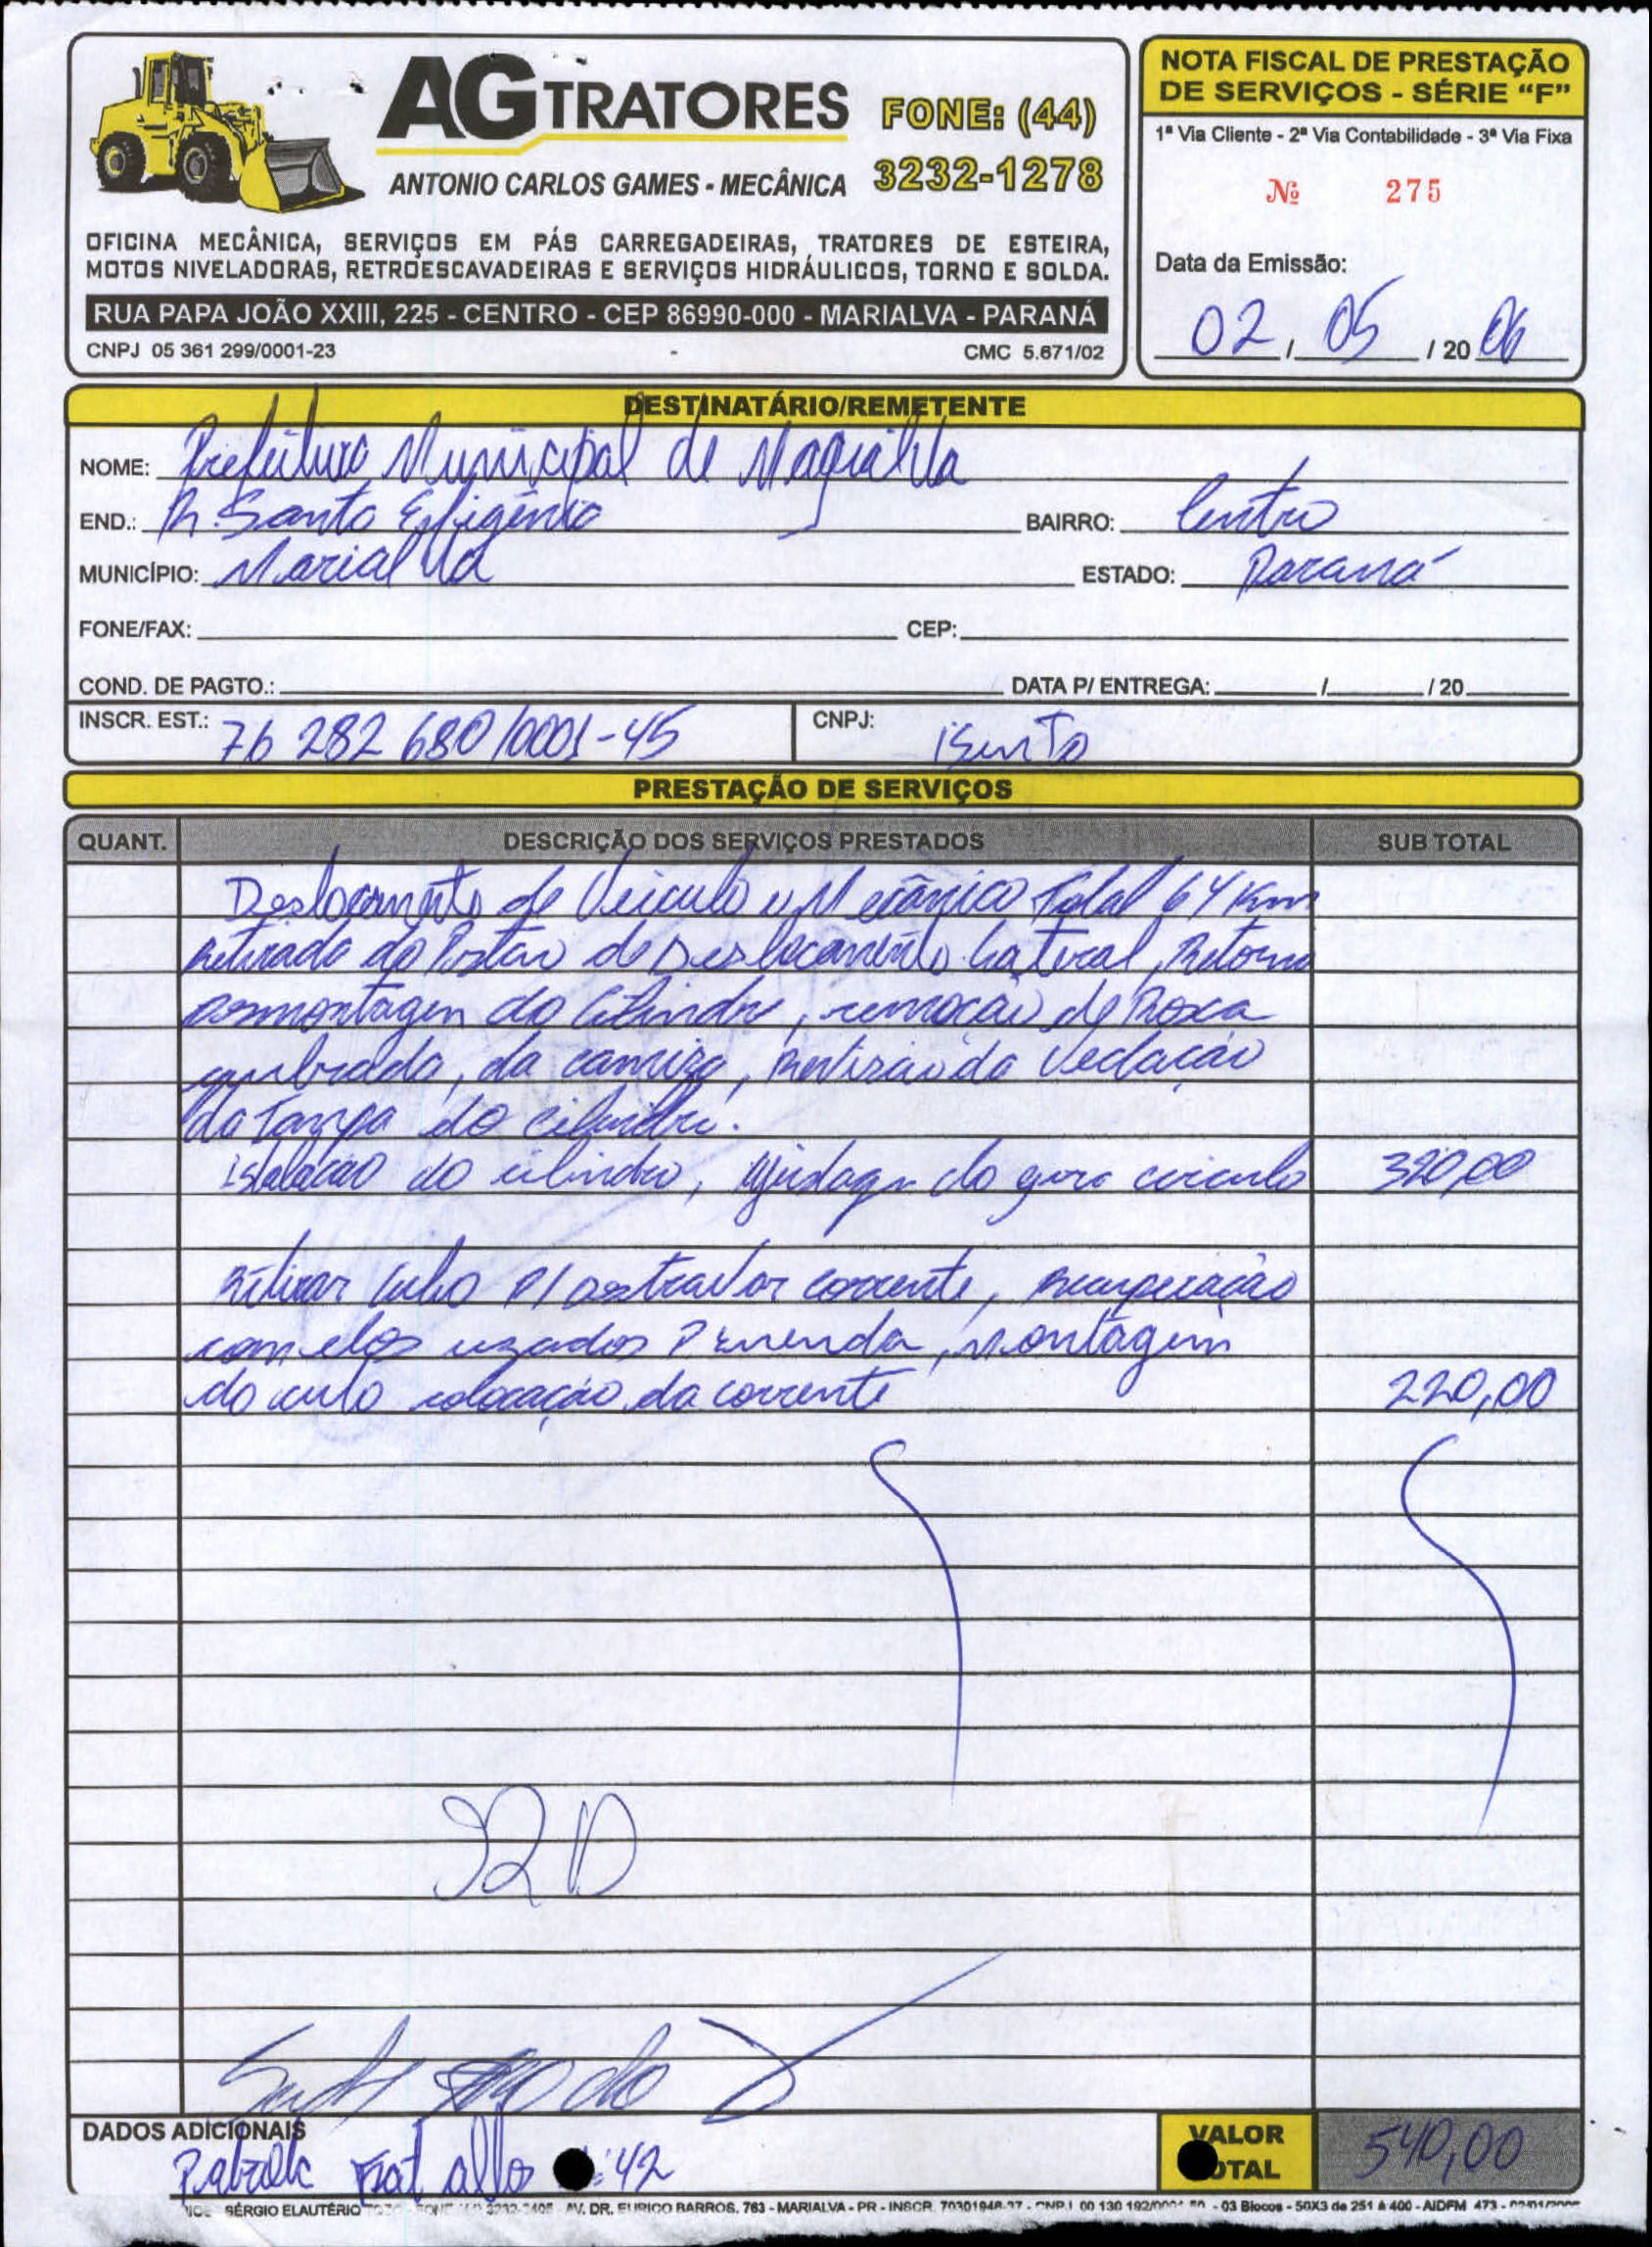 AG TRATORES
FONE: (44)
3232-1278
ANTONIO CARLOS GAMES - MECÂNICA
OFICINA MECÂNICA, SERVIÇOS EM PÁS CARREGADEIRAS, TRATORES DE ESTEIRA,
MOTOS NIVELADORAS, RETROESCAVADEIRAS E SERVIÇOS HIDRÁULICOS, TORNO E SOLDA.
RUA PAPA JOÃO XXIII, 225 - CENTRO - CEP 86990-000 - MARIALVA - PARANÁ
CNPJ 05 361 299/0001-23 - CMC 5.671/02
NOTA FISCAL DE PRESTAÇÃO
DE SERVIÇOS - SÉRIE “F”
1ª Via Cliente - 2ª Via Contabilidade - 3ª Via Fixa
Nº 275
Data da Emissão:
02 / 05 / 20 06
DESTINATÁRIO/REMETENTE
NOME: Prefeitura Municipal de
END.: R. Santa Efigênia BAIRRO: Centro
MUNICÍPIO: Marialva ESTADO: Paraná
FONE/FAX: CEP:
COND. DE PAGTO.: DATA P/ ENTREGA: / / 20
INSCR. EST.: 76 282 680/0001-45 CNPJ: isento
PRESTAÇÃO DE SERVIÇOS
QUANT. DESCRIÇÃO DOS SERVIÇOS PRESTADOS SUB TOTAL
Deslocamento de Veiculo e Mecânico Total 64 Km
retirada do Pistão de Deslocamento Lateral, Retorno
desmontagem do Cilindro, remoção de Rosca
quebrada, da camisa, da Vedação
da Tampa do cilindro.
Istalação do cilindro, do giro circulo 320,00
Retirar P/ corrente, recuperação
com elos uzados P emenda, montagem
do colocação da corrente 220,00
92D
DADOS ADICIONAIS
Fiat 42
VALOR TOTAL 540,00
SÉRGIO ELAUTÉRIO AV. DR. EURICO BARROS, 763 - MARIALVA - PR - INSCR. 70301948-37 - CNPJ 00 130 192/0001 - 03 Blocos - 50X3 de 251 A 400 - AIDFM 473 -